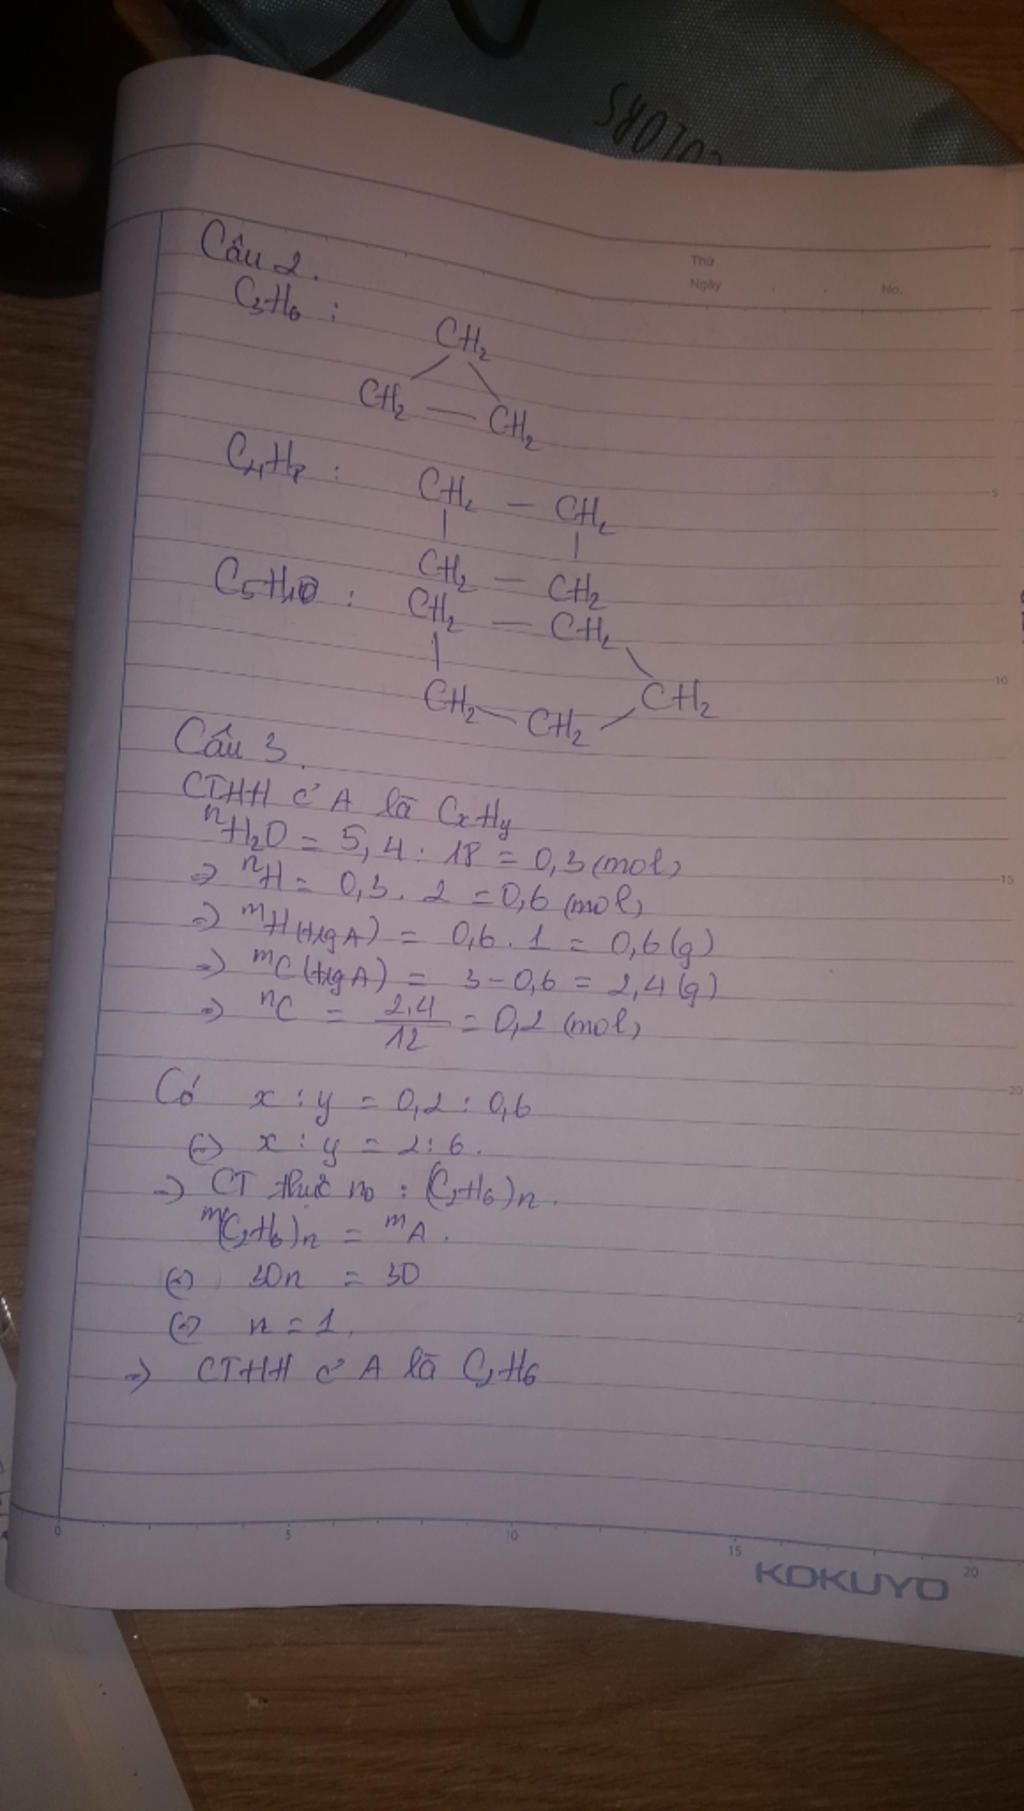 COLORS
Thứ
Ngày . . No.
Câu 2.
C3H6 :
CH2
CH2 — CH2
C4H8 :
CH2 — CH2
CH2 — CH2
C5H10 :
CH2 — CH2
CH2
CH2 CH2
Câu 3.
CTHH c' A là CxHy
nH2O = 5,4 : 18 = 0,3 (mol)
=> nH = 0,3 . 2 = 0,6 (mol)
=> mH (trg A) = 0,6 . 1 = 0,6 (g)
=> mC (trg A) = 3 - 0,6 = 2,4 (g)
=> nC = 2,4/12 = 0,2 (mol)
Có x : y = 0,2 : 0,6
(=) x : y = 2 : 6.
=> CT thực no : (C2H6)n.
m(C2H6)n = mA.
(=) 30n = 30
(=) n = 1.
=> CTHH c' A là C2H6
5
10
15
20
0 5 10 15 20
KOKUYO